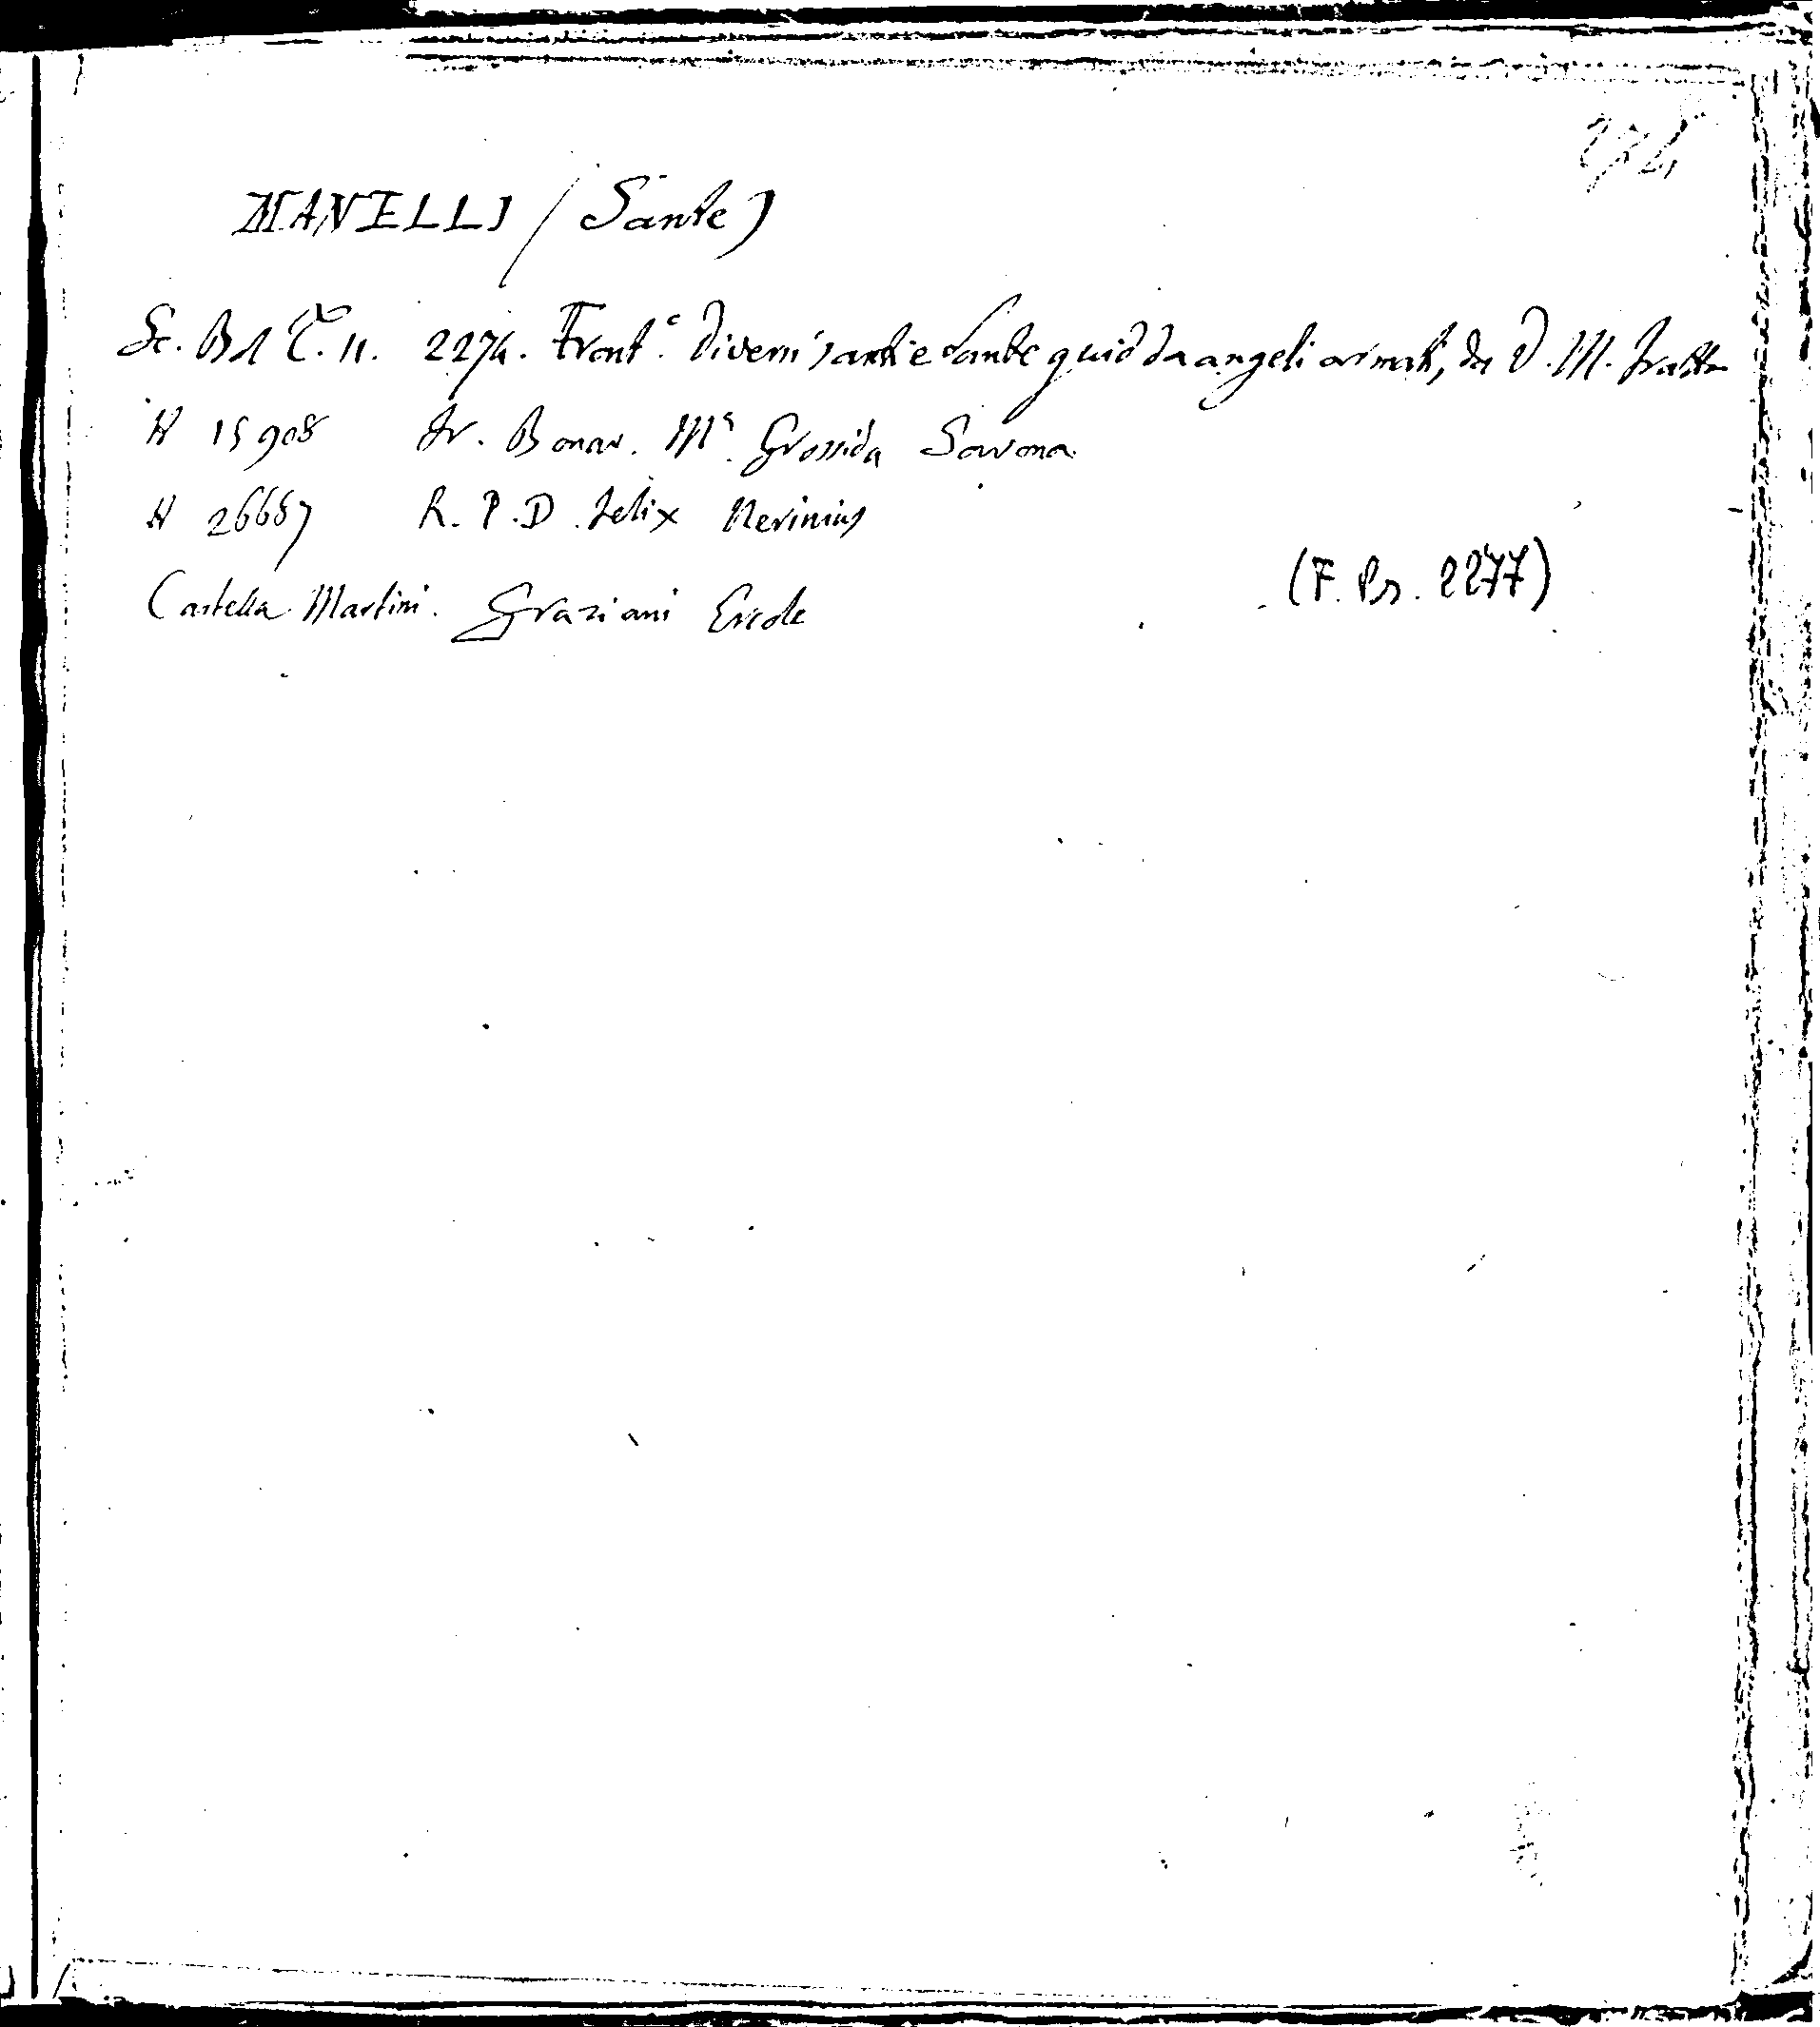 274
MANELLI (Sante)
Sc. B1 C. II. 2274. Front.e Diversi santi e sante guid da angeli armati, da D. M. Fratta
A 15908 Fr. Bonav. Ms. Grossida Savona
A 26687 R. P. D. Felix Nerinius
(F. Pr. 2277)
Cartella Martini. Graziani Ercole